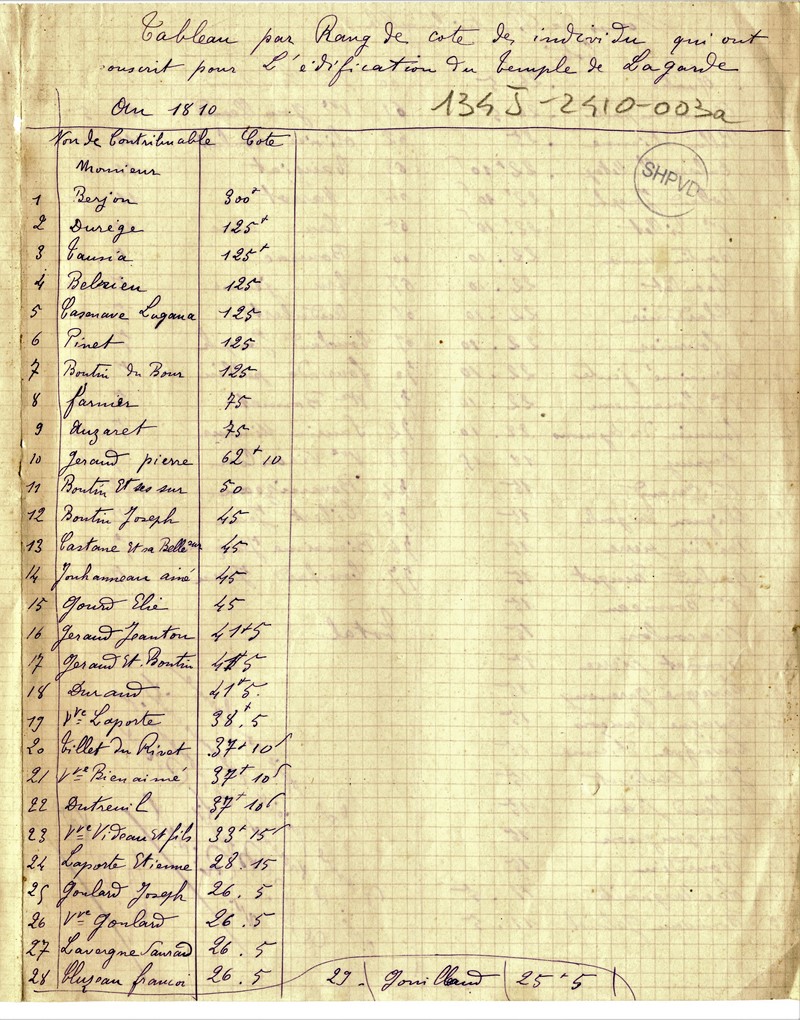 Tableau par Rang de cote des individu qui ont
onscrit pour L'édification du temple de Lagarde
An 1810
134J-2410-003a
SHPVD
Non de Contribuable Cote
Monsieur
1 Berjon 300ᵗ
2 Durège 125ᵗ
3 Tausia 125ᵗ
4 Belrieu 125
5 Casenave Lugana 125
6 Pinet 125
7 Boutin du Bour 125
8 farmer 75
9 Auzaret 75
10 Geraud pierre 62ᵗ 10
11 Boutin Et sur 50
12 Boutin Joseph 45
13 Castane Et sa Belle sœur 45
14 Jouhanneau ainé 45
15 Gourd Elie 45
16 Geraud Jeanton 41ᵗ5
17 Geraud Et Boutin 41ᵗ5
18 Durand 41ᵗ5.
19 Vᵛᵉ Laporte 38ᵗ.5
20 Tillet du Rivet 37ᵗ 10ˢ
21 Vᵛᵉ Bien aimé 37ᵗ 10ˢ
22 Dutreuil 37ᵗ 10ˢ
23 Vᵛᵉ Videau Et fils 33ᵗ 15ˢ
24 Laporte Etienne 28.15
25 Goulard Joseph 26.5
26 Vᵛᵉ Goulard 26.5
27 Lavergne 26.5
28 Cluzeau francoi 26.5
29. Gouilland 25ᵗ5